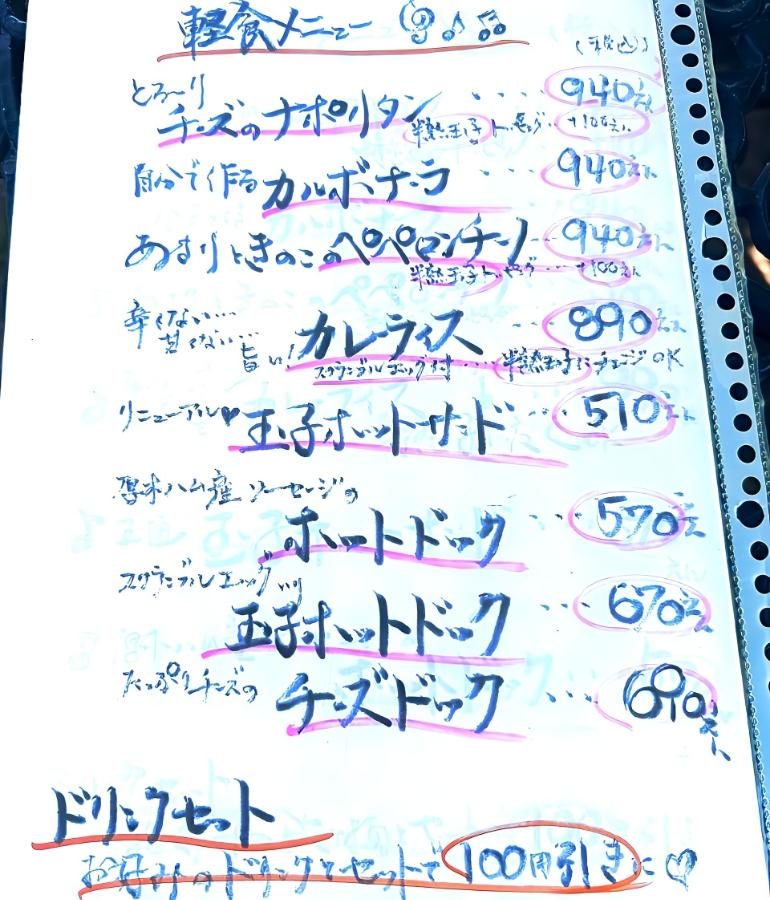 軽食メニュー
(税込)
とろ〜り
チーズのナポリタン ・・・・ 940えん
半熟玉子トッピング… +100えん
自分で作る カルボナーラ ・・・ 940えん
あさりときのこのペペロンチーノ… 940えん
半熟玉子トッピング…+100えん
辛くない…
甘くない…
旨い! カレーライス … 890えん
スクランブルエッグ付… 半熟玉子にチェンジOK
リニューアル♥ 玉子ホットサンド… 510えん
厚木ハム産ソーセージの
ホットドック … 570えん
スクランブルエッグ入り
玉子ホットドック … 670えん
たっぷりチーズの チーズドック … 690えん
ドリンクセット
お好みのドリンクとセットで 100円引きに♡